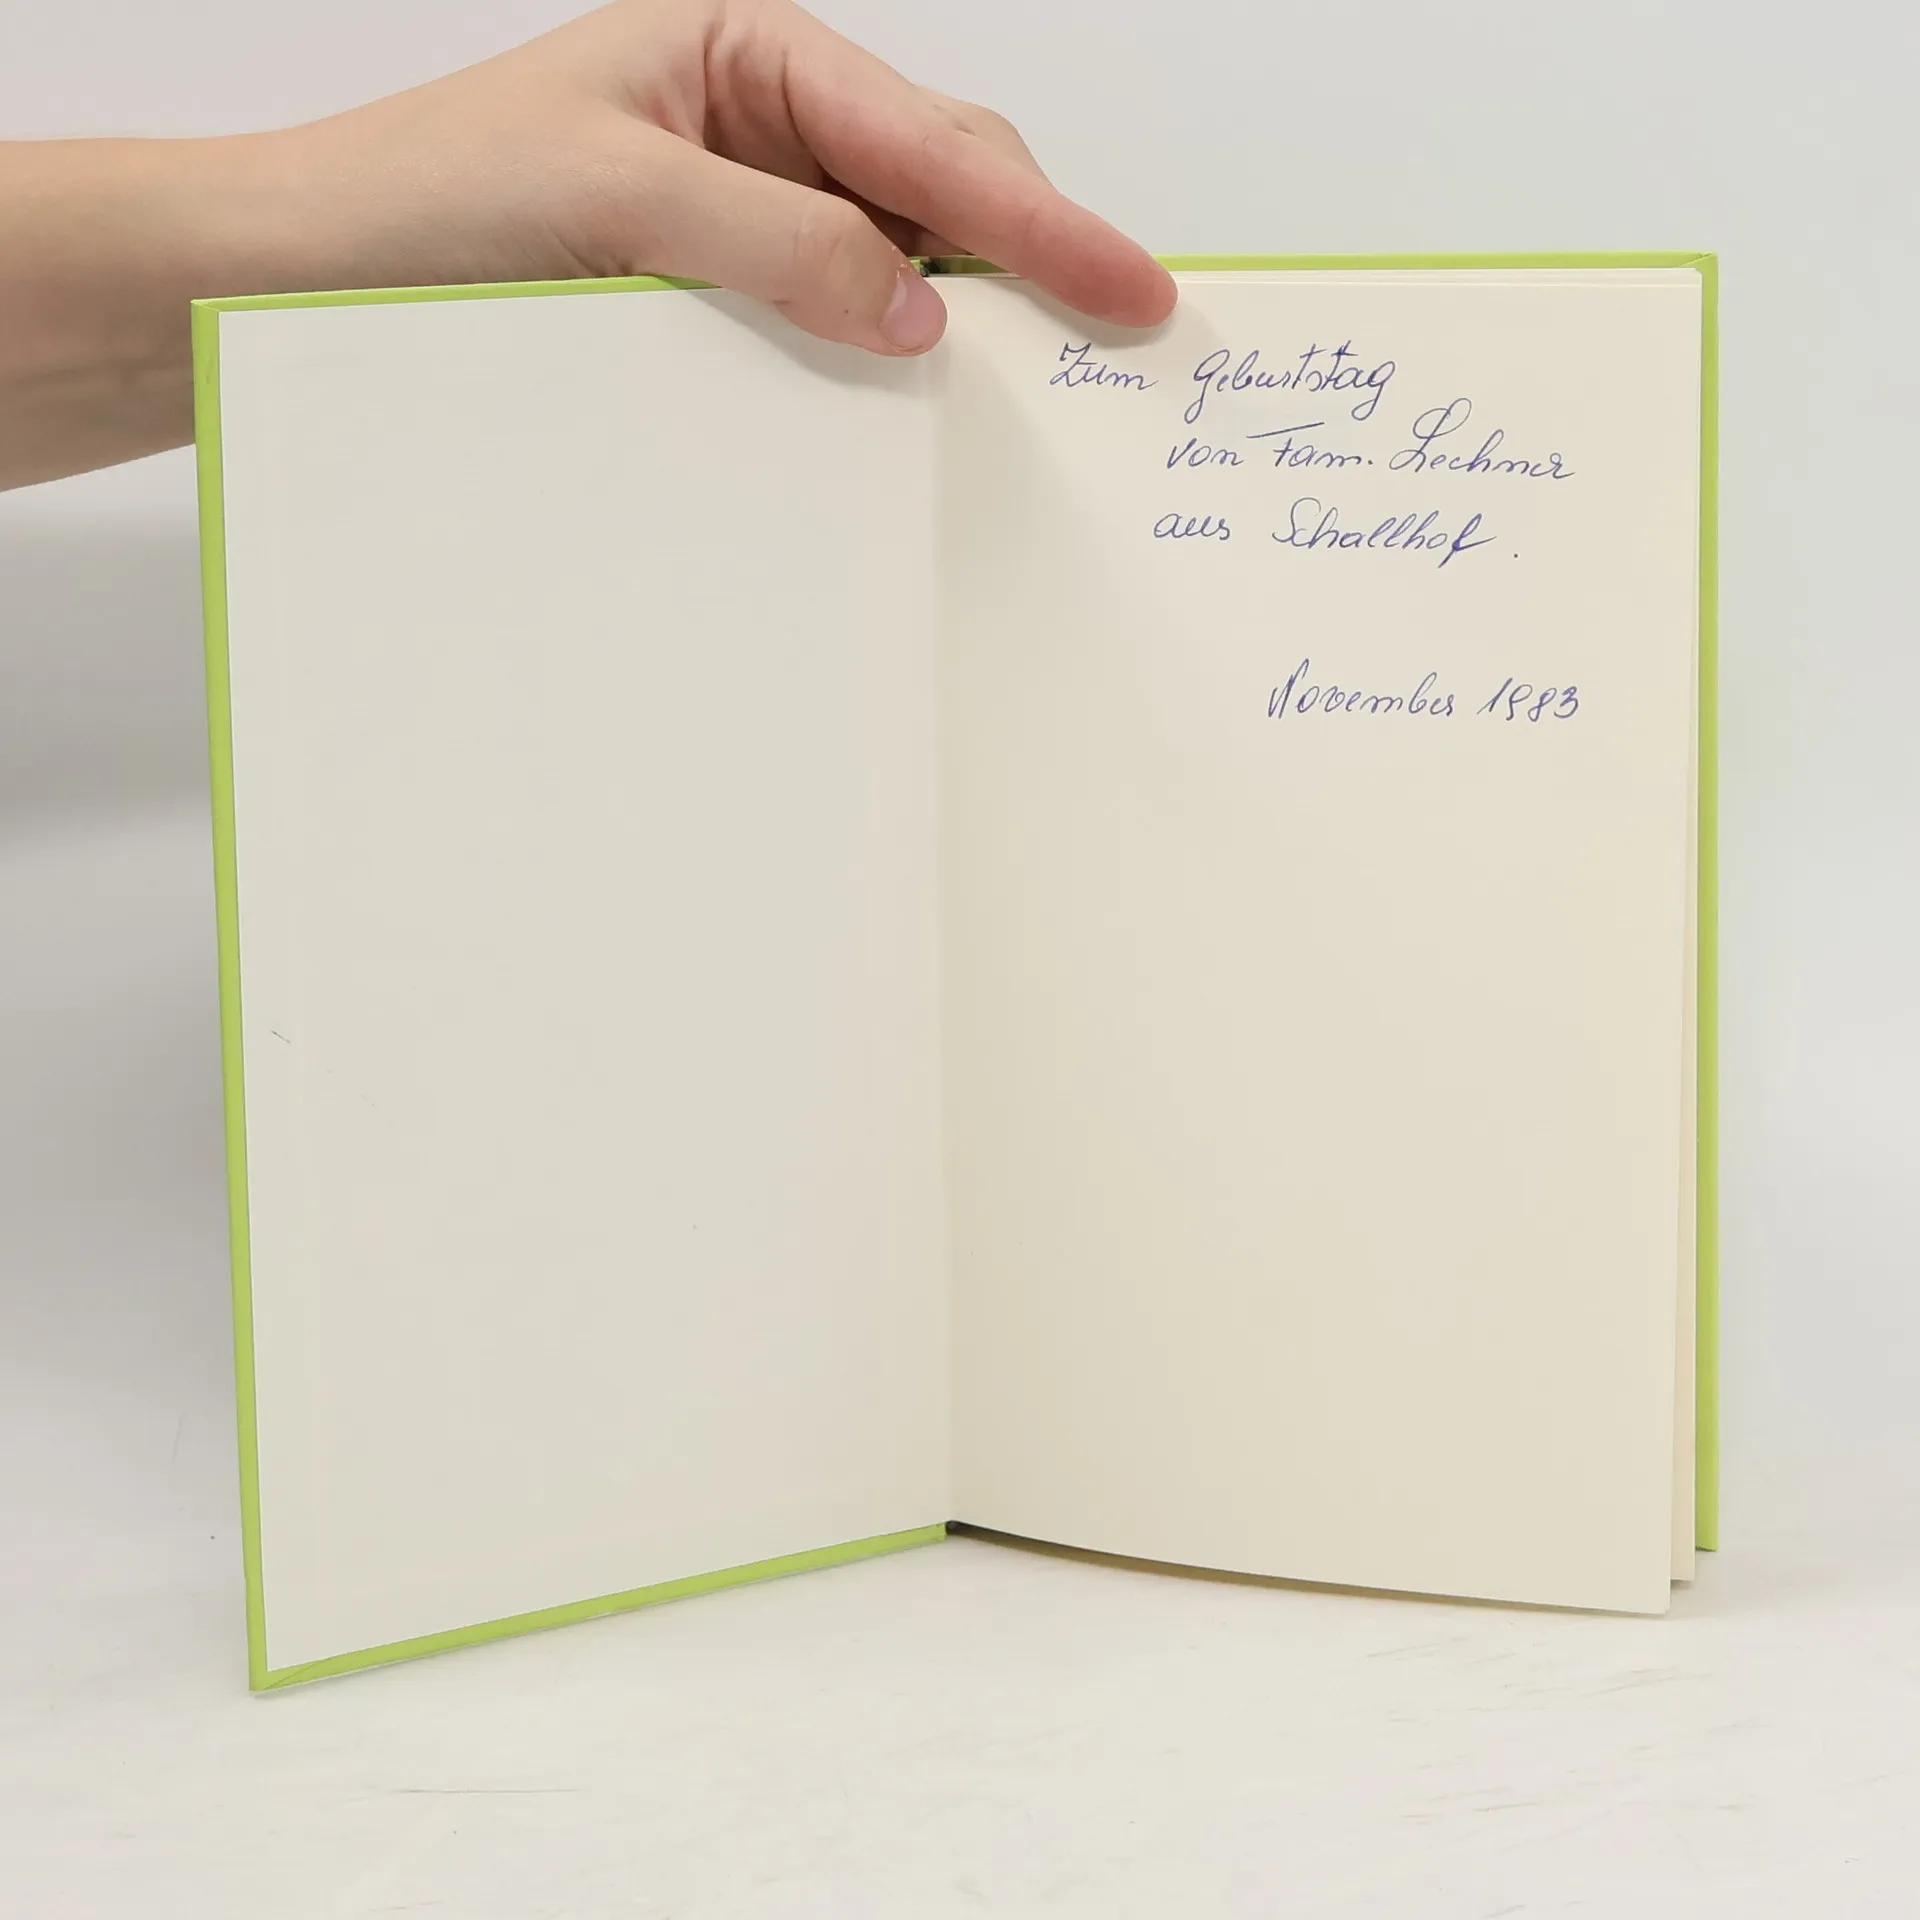 Zum Geburtstag
von Fam. Lechner
aus Schallhof.
November 1983